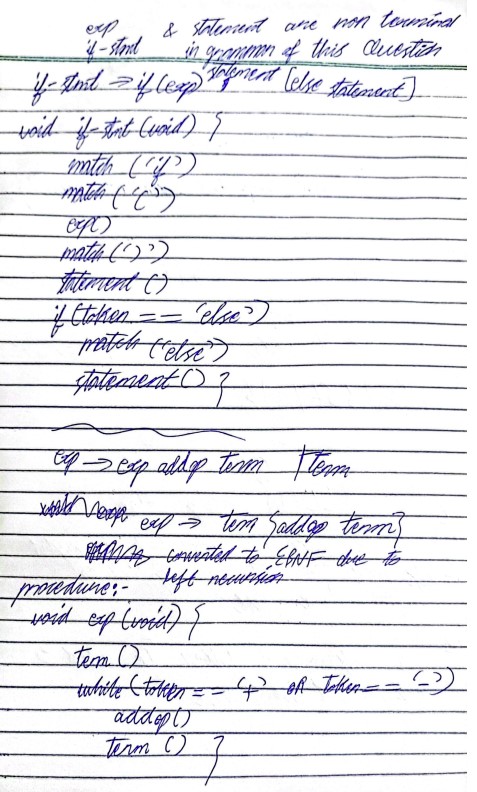 exp & statement are non terminal
if-stmt in grammar of this Question
if-stmt => if (exp) statement [else statement]
void if-stmt (void) {
match ('if')
match ('(')
exp()
match (')')
statement ()
if (token == 'else')
match ('else')
statement () }
exp → exp addop term | term
exp → term {addop term}
converted to EBNF due to
left recursion
procedure:-
void exp (void) {
term ()
while (token == '+' OR token == '-')
addop()
term () }